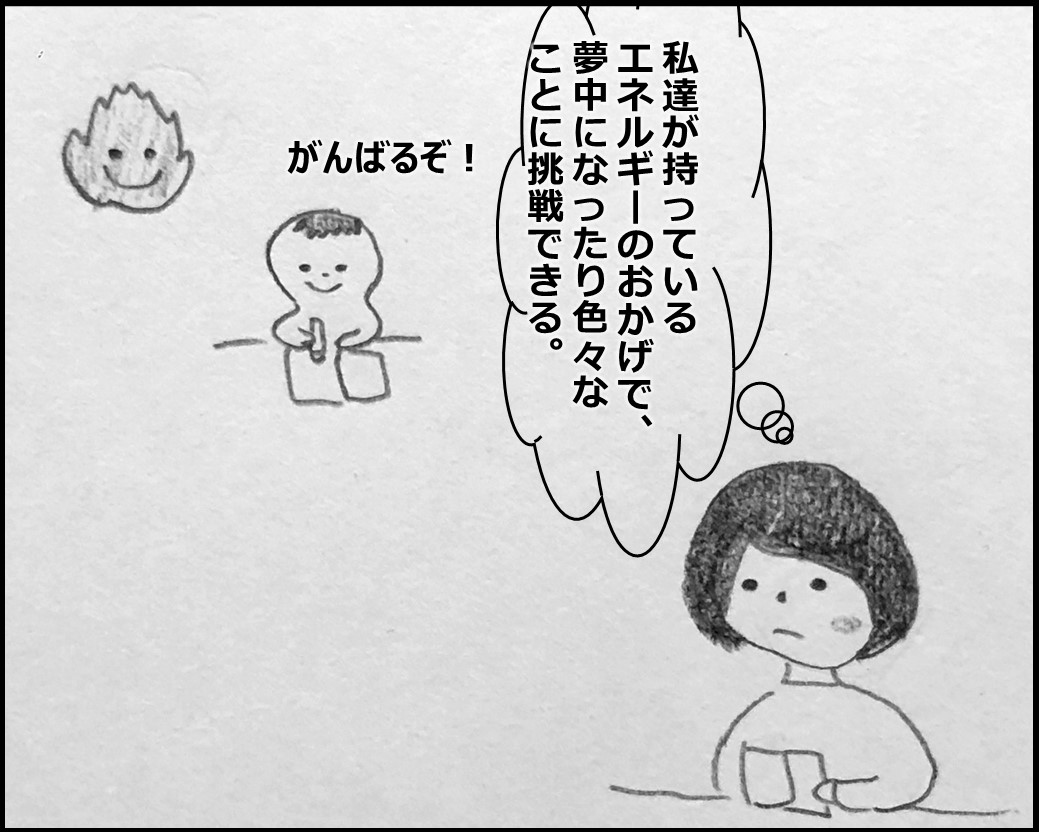 私達が持っている
エネルギーのおかげで、
夢中になったり色々な
ことに挑戦できる。
がんばるぞ！